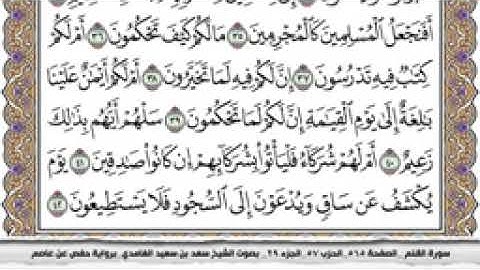 أَفَنَجْعَلُ الْمُسْلِمِينَ كَالْمُجْرِمِينَ ٣٥ مَا لَكُمْ كَيْفَ تَحْكُمُونَ ٣٦ أَمْ لَكُمْ
كِتَابٌ فِيهِ تَدْرُسُونَ ٣٧ إِنَّ لَكُمْ فِيهِ لَمَا تَخَيَّرُونَ ٣٨ أَمْ لَكُمْ أَيْمَانٌ عَلَيْنَا
بَالِغَةٌ إِلَىٰ يَوْمِ الْقِيَامَةِ إِنَّ لَكُمْ لَمَا تَحْكُمُونَ ٣٩ سَلْهُمْ أَيُّهُم بِذَٰلِكَ
زَعِيمٌ ٤٠ أَمْ لَهُمْ شُرَكَاءُ فَلْيَأْتُوا بِشُرَكَائِهِمْ إِن كَانُوا صَادِقِينَ ٤١ يَوْمَ
يُكْشَفُ عَن سَاقٍ وَيُدْعَوْنَ إِلَى السُّجُودِ فَلَا يَسْتَطِيعُونَ ٤٢
سورة القلم _ الصفحة ٥٦٥_ الحزب ٥٧_ الجزء ٢٩_ بصوت الشيخ سعد بن سعيد الغامدي برواية حفص عن عاصم